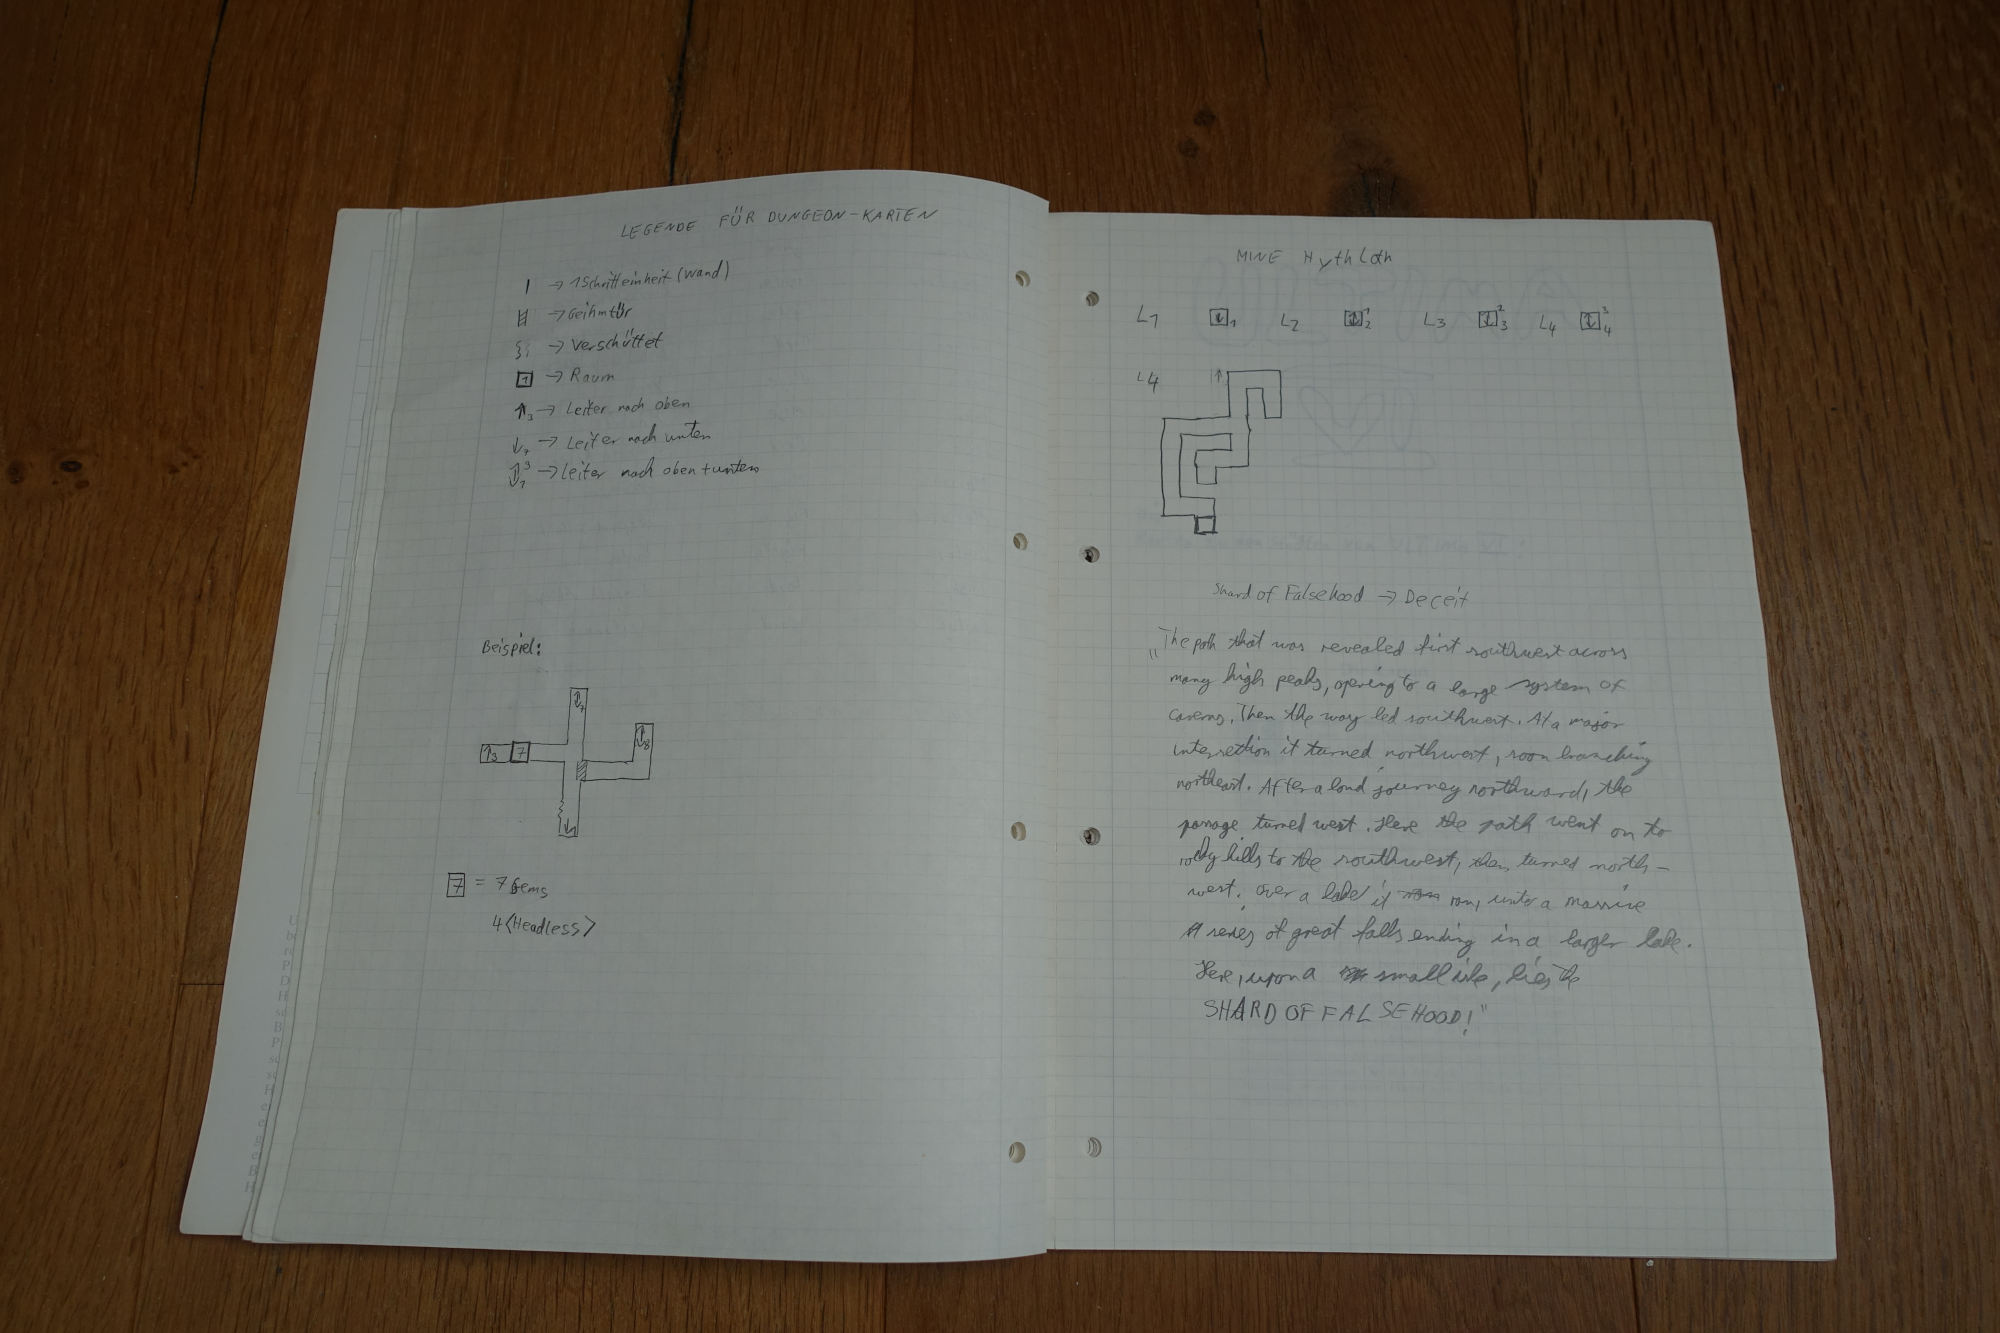 LEGENDE FÜR DUNGEON-KARTEN
| → 1 Schritteinheit (Wand)
→ Geihmtür
→ Verschüttet
1 → Raum
↑3 → Leiter nach oben
↓7 → Leiter nach unten
↕ 3 1 → Leiter nach oben + unten
Beispiel:
↕7
↑3 7
↕8
↓1
7 = 7 Gems
4 <Headless>
MINE Hythloth
L1 ↓1 L2 ↕ 1 2 L3 ↕ 2 3 L4 ↕ 3 4
L4 ↑
Shard of Falsehood → Deceit
"The path that was revealed first southwest across
many high peaks, opening to a large system of
caverns. Then the way led southwest. At a major
intersection it turned northwest, soon branching
northeast. After a lond journey northward, the
passage turned west. Here the path went on to
rocky hills to the southwest, then turned north-
west. Over a lake it ran, unto a massive
series of great falls ending in a larger lake.
Here, upon a small isle, lies the
SHARD OF FALSEHOOD!"